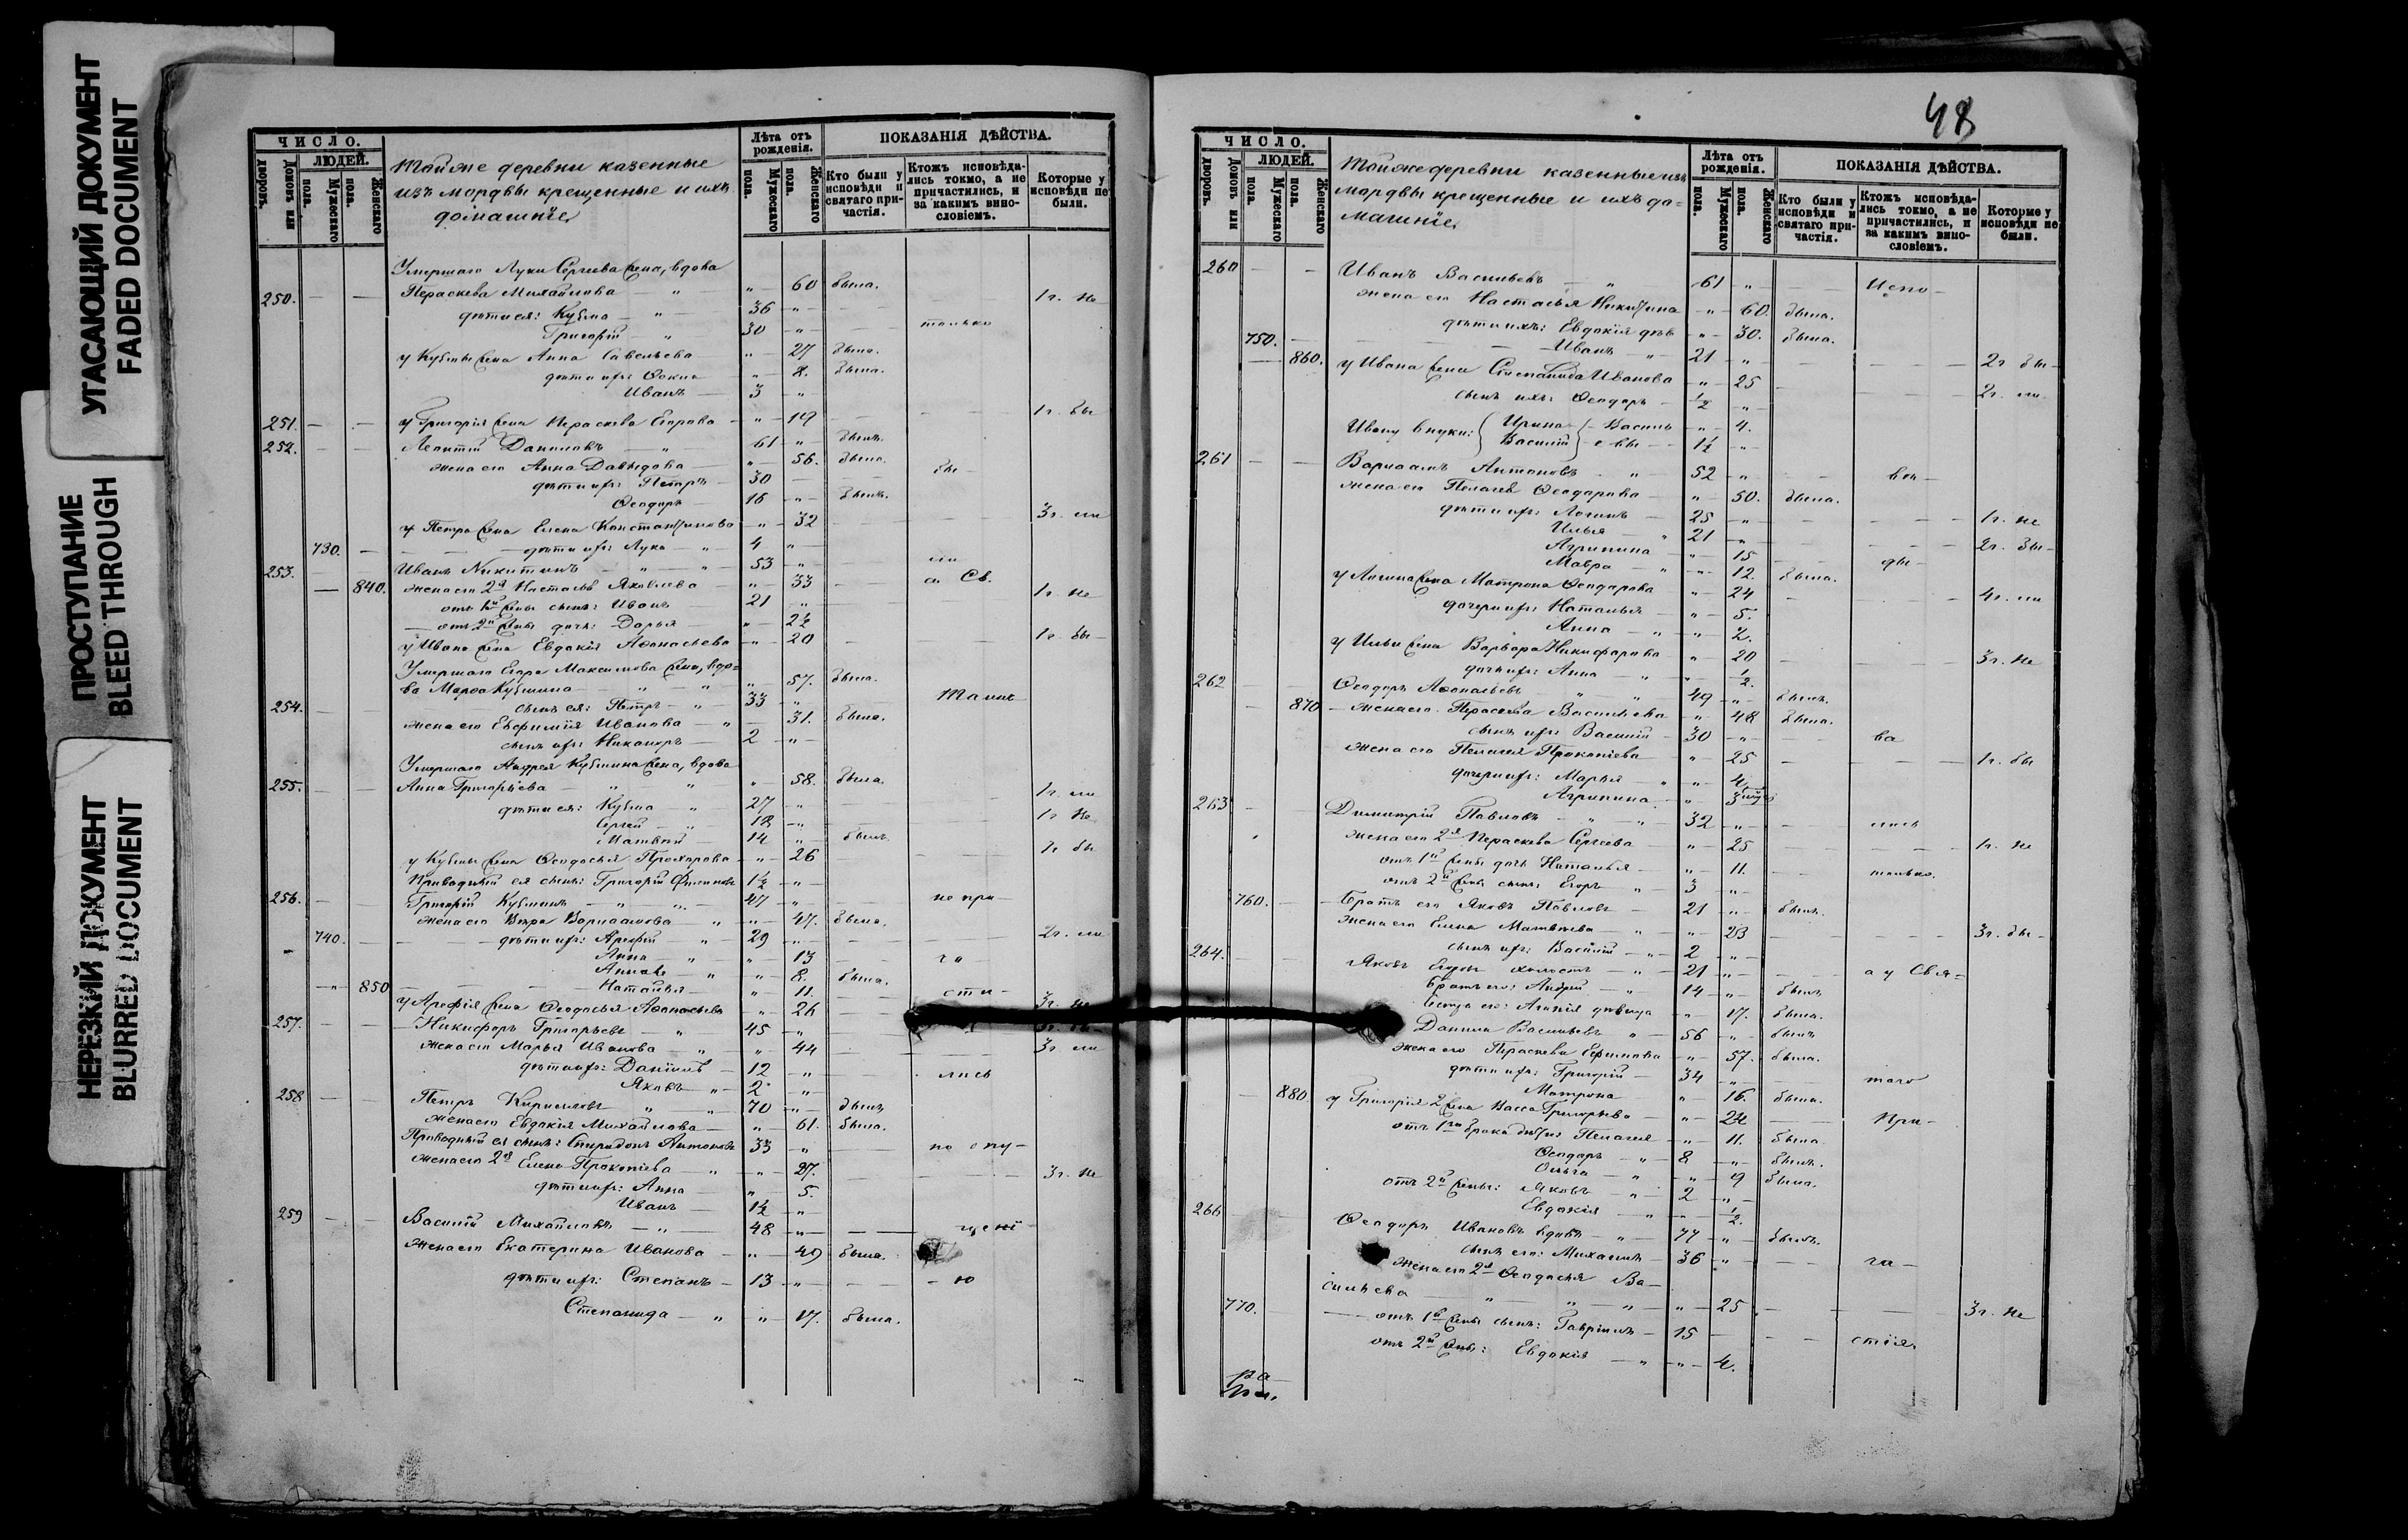 УГАСАЮЩИЙ ДОКУМЕНТ
FADED DOCUMENT
ПРОСТУПАНИЕ
BLEED THROUGH
НЕРЕЗКИЙ ДОКУМЕНТ
BLURRED DOCUMENT
ЧИСЛО.
Домовъ или дворовъ.
ЛЮДЕЙ.
Мужескаго пола.
Женскаго пола.
Тойже деревни казенные
изъ мордвы крещенные и ихъ
домашніе
Лѣта отъ рожденія.
Мужескаго пола.
Женскаго пола.
ПОКАЗАНІЯ ДѢЙСТВА.
Кто были у исповѣди и святаго причастія.
Ктожъ исповѣдались токмо, а не причастились, и за какимъ винословіемъ.
Которые у исповѣди не были.
Умершаго Луки Сергѣева жена, вдова
250. — — Пераскева Михайлова — " " — 60 была.
дѣти ея: Кузма — " — 36 — " — 1г. не
Григорій " 30 — " — только
у Кузмы жена Анна Савельева " — 27 была.
дѣти ихъ: " — 8. была.
Иванъ — 3 — "
251. — — у Григорія жена Пераскева Егорова — " — 19 — — 1г. бы
252. — — Леонтій Даниловъ — " 61 — " — былъ.
жена его Анна Давыдова — " — 56. была.
дѣти ихъ: Петръ — 30 — — бы —
Ѳеодоръ 16 — " — былъ.
у Петра жена Елена Константинова — " — 32 — — 3г. ли
730. — дѣти ихъ: Лука — " — 4 — "
253. Иванъ Никитинъ — " — " 53 — " — ли
— 840. жена его 2я Настасья Яковлева " — 33 — а Св.
отъ 1й жены сынъ: Иванъ — 21 — " 1г. не
— отъ 2й жены дочь: Дарья — " — 2½
у Ивана жена Евдокія Аѳонасьева — " — 20 — — 1г. бы —
Умершаго Егора Максимова жена, вдо=
ва Марѳа Кузмина — " — " " — 57. была.
254. — — сынъ ея: Петръ — " 33 — " — Таинъ
жена его Евѳимія Иванова — " — 31. была.
сынъ ихъ: Никаноръ — 2 — " —
Умершаго Андрея Кузмина жена, вдова
255. — — Анна Григорьева — " " " — 58. была.
дѣти ея: Кузма — " 27 — " 1г. ли
Сергѣй — " 18 — " — 1г. не
Матвѣй — 14 — " былъ.
у Кузмы жена Ѳеодосья Прохорова — " — 26 — — 1г. бы
Приводный ея сынъ: Григорій 1½ — " —
256. — — Григорій Кузминъ — " — " 47 — " не при —
жена его Вѣра Варлаамова " — " — 47. была.
740. — дѣти ихъ: Арефій " 29 — " — 2г. ли
Анна " " — 13 — ча
" — " — 8. была.
— " — 850 Наталья — " — 11 — сти —
у Арефія жена Ѳеодосья Аѳонасьева " — 26 — 3г. не
257. — — Никифоръ Григорьевъ " 45 — " — бы —
жена его Марья Иванова " " — 44 — — 3г. ли
дѣти ихъ: Даніилъ — 12 — " — лись
Яковъ — " 2 — "
258 — — Петръ Кириловъ " " 70 — " — былъ
жена его Евдокія Михайлова — " — 61. была.
Приводный ея сынъ: Спиридонъ Антоновъ 33 — " — по опу —
жена его 2я Елена Прокопіева — " — " — 27. — — 3г. не
дѣти ихъ: Анна — " — 5.
Иванъ — 1½ — "
259 — — Василій Михайловъ — " — 48 — " — — щені —
жена его Екатерина Иванова — " — 49 была.
дѣти ихъ: Степанъ — 13 — " — — ю
Степанида — " — " — 17. была.
48
ЧИСЛО.
Домовъ или дворовъ.
ЛЮДЕЙ.
Мужескаго пола.
Женскаго пола.
Тойже деревни казенные изъ
мордвы крещенные и ихъ до=
машніе
Лѣта отъ рожденія.
Мужескаго пола.
Женскаго пола.
ПОКАЗАНІЯ ДѢЙСТВА.
Кто были у исповѣди и святаго причастія.
Ктожъ исповѣдались токмо, а не причастились, и за какимъ винословіемъ.
Которые у исповѣди не были.
260 — — Иванъ Васильевъ — " 61 — " — — Испо —
жена его Настасья Никитина — " — 60. была.
дѣти ихъ: Евдокія дѣв — " — 30. была.
750. — Иванъ — " — 21 — " — — 2г бы —
— 860. у Ивана жена Степанида Иванова — " — 25 — — 2г. ли
сынъ ихъ: Ѳеодоръ — ½ — "
Ивану внуки: { Ирина } Василь — " — 4.
Василій } евы — 1½ — "
261 — — Варлаамъ Антоновъ — " 52 — " — — вѣ —
жена его Пелагея Ѳеодорова — " — 50. была.
дѣти ихъ: Логинъ — 25 — " — — 1г. не
Илья — " 21 — " — — 2г. бы —
Агрипина — " — 15 — — ды —
Мавра — " — " — 12. была.
у Логина жена Матрона Ѳеодорова — " — 24 — — 4г. ли
дочери ихъ: Наталья — " — 5.
Анна — " — " — 2.
у Ильи жена Варвара Никифорова " — 20 — — 3г. не
дочь ихъ: Анна " " — ½.
262 — Ѳеодоръ Аѳонасьевъ " — " 49 — " — былъ.
— 870 — жена его Пераскева Васильева — " — 48 была.
сынъ ихъ: Василій — 30 — " — ва
жена его Пелагея Прокопіева " — 25 — — 1г. бы
дочери ихъ: Марья — " " — 4.
Агрипина — " — 3
263 — Димитрій Павловъ — " — " 32 — " — лись
жена его 2я Пераскева Сергѣева — " — 25 — — 1г. не
отъ 1й жены дочь Наталья — " — 11. — только.
отъ 2й жены сынъ: Егоръ " 3 — "
760. — — Братъ его Яковъ Павловъ — 21 — " — былъ.
жена его Елена Матвѣева — " " — 23 — — 3г. бы —
сынъ ихъ: Василій — " 2 — "
264. — — Яковъ Егоровъ холостъ — " — 21 — " — — а у Свя=
братъ его: Андрей — " 14 — " — былъ
Сестра его: дѣвица " — 17. была.
Данила Васильевъ " 56 — " — былъ
жена его Пераскева Ефимова — " — 57. была.
дѣти ихъ: Григорій — 34 — " — — таго
Матрона " — 16. была.
— 880 у Григорія 2 жена Васса Григорьева — " — 22 — — При —
отъ 1го брака дѣти: Пелагея — " — 11. была
Ѳеодоръ — " — 8 — " — былъ.
Ольга — " — " — 9 была.
отъ 2й жены: Яковъ — " — 2 — "
Евдокія — " — " — ½.
266 — — Ѳеодоръ Ивановъ вдовъ — " — 77 — " былъ.
сынъ его: Михаилъ — 36 — " — — ча —
жена его 2я Ѳеодосья Ва —
сильева — " — " — " — " — 25 — — 3г. не
770. — отъ 1й жены сынъ: Гавріилъ — 15 — — — стія.
отъ 2й жены: Евдокія — " — " — 4.